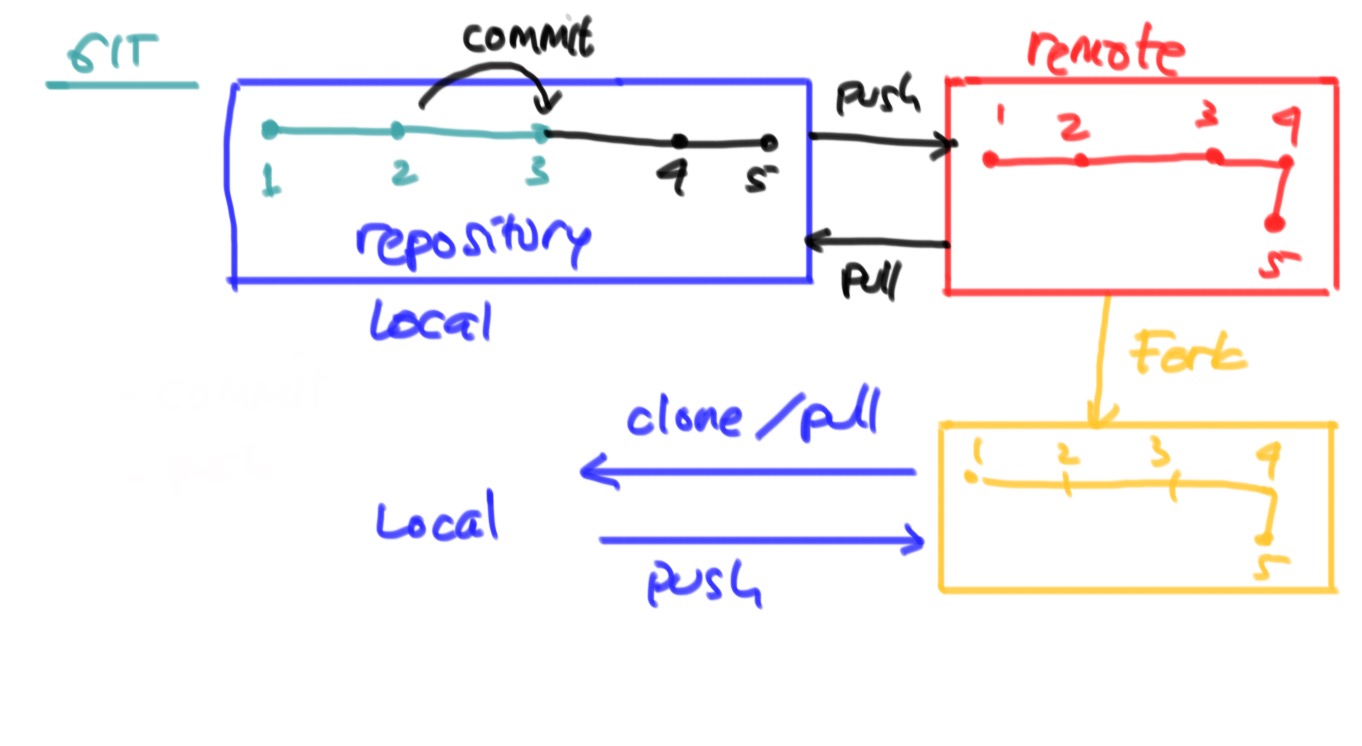 GIT
commit
1 2 3 4 5
repository
Local
push
pull
remote
1 2 3 4
5
Fork
1 2 3 4
5
clone/pull
Local
push
- commit
- push